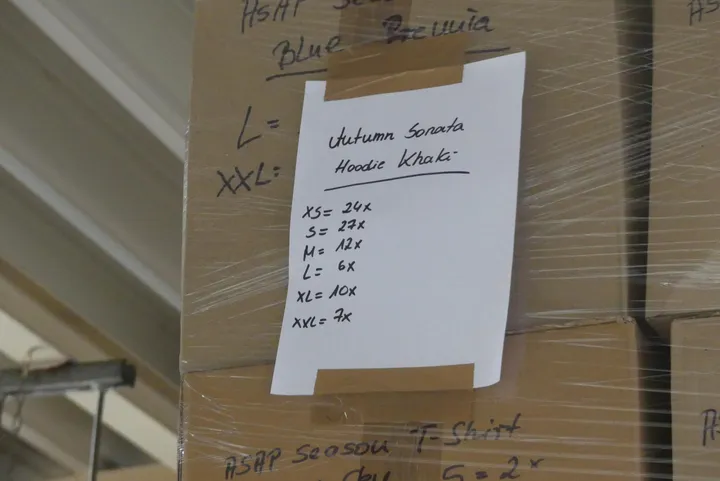 ASAP
Blue
L=
XXL=
Autumn Sonata
Hoodie Khaki
XS= 24x
S= 27x
M= 12x
L= 6x
XL= 10x
XXL= 7x
ASAP Season T-Shirt
S=2x